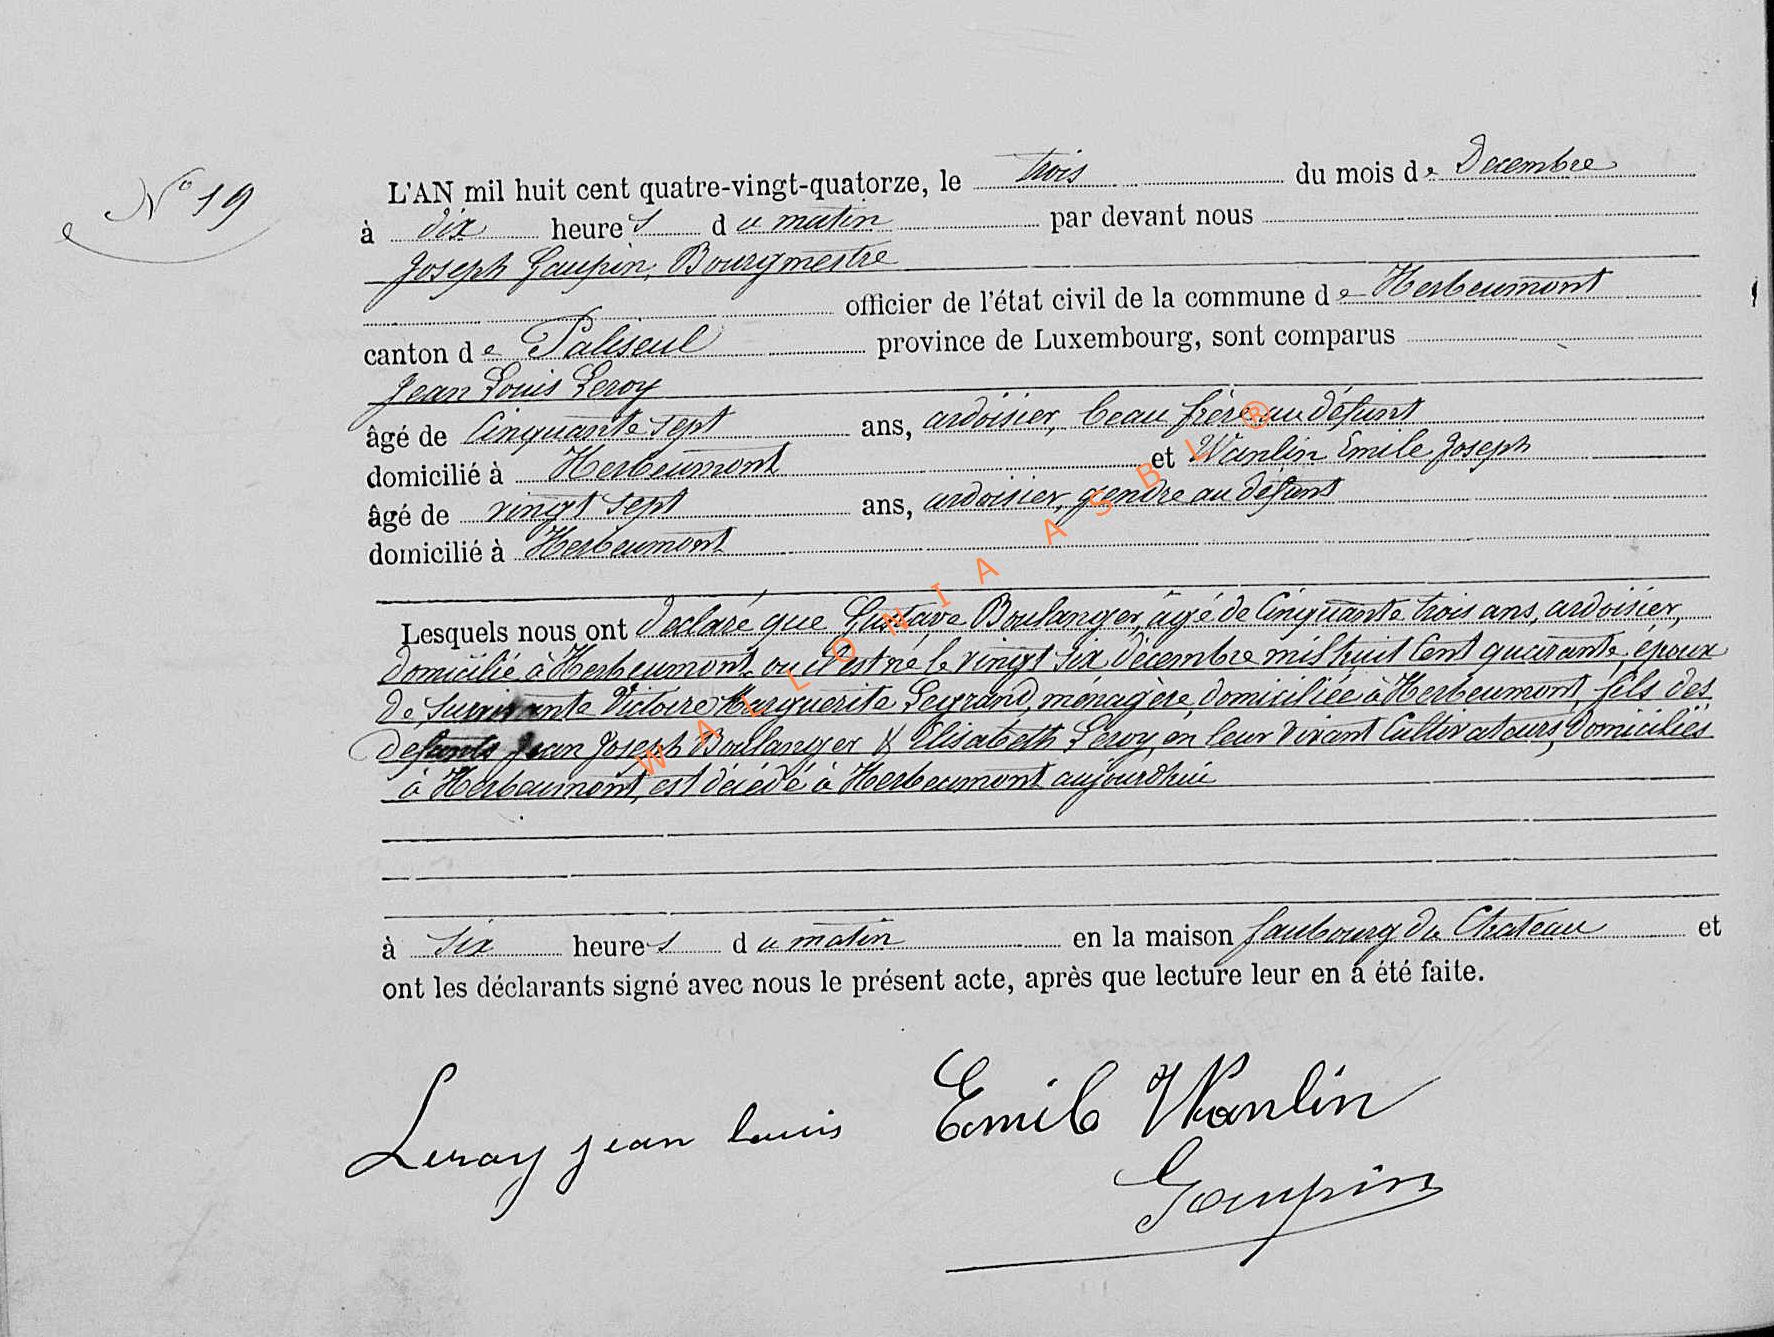 N° 19
L'AN mil huit cent quatre-vingt-quatorze, le trois du mois de Decembre
à dix heures du matin par devant nous
Joseph Goupin, Bourgmestre
officier de l'état civil de la commune de Herbeumont
canton de Paliseul province de Luxembourg, sont comparus
Jean Louis Leroy
âgé de Cinquante sept ans, ardoisier, beau frère au défunt
domicilié à Herbeumont et Wanlin Emile Joseph
âgé de vingt sept ans, ardoisier, gendre au défunt
domicilié à Herbeumont
Lesquels nous ont déclaré que Gustave Boulanger, âgé de Cinquante trois ans, ardoisier,
domicilié à Herbeumont, ou il est né le vingt six décembre mil huit Cent quarante, époux
de survivante Victoire Marguerite Legrand, ménagère, domiciliée à Herbeumont, fils des
défunts Jean Joseph Boulanger & Elisabeth Leroy, en leur vivant Cultivateurs, domiciliés
à Herbeumont, est décédé à Herbeumont aujourdhui
à six heures du matin en la maison faubourg du Chateau et
ont les déclarants signé avec nous le présent acte, après que lecture leur en a été faite.
Leroy jean louis Emile Wanlin
Goupin
WALLONIA ASBL ®